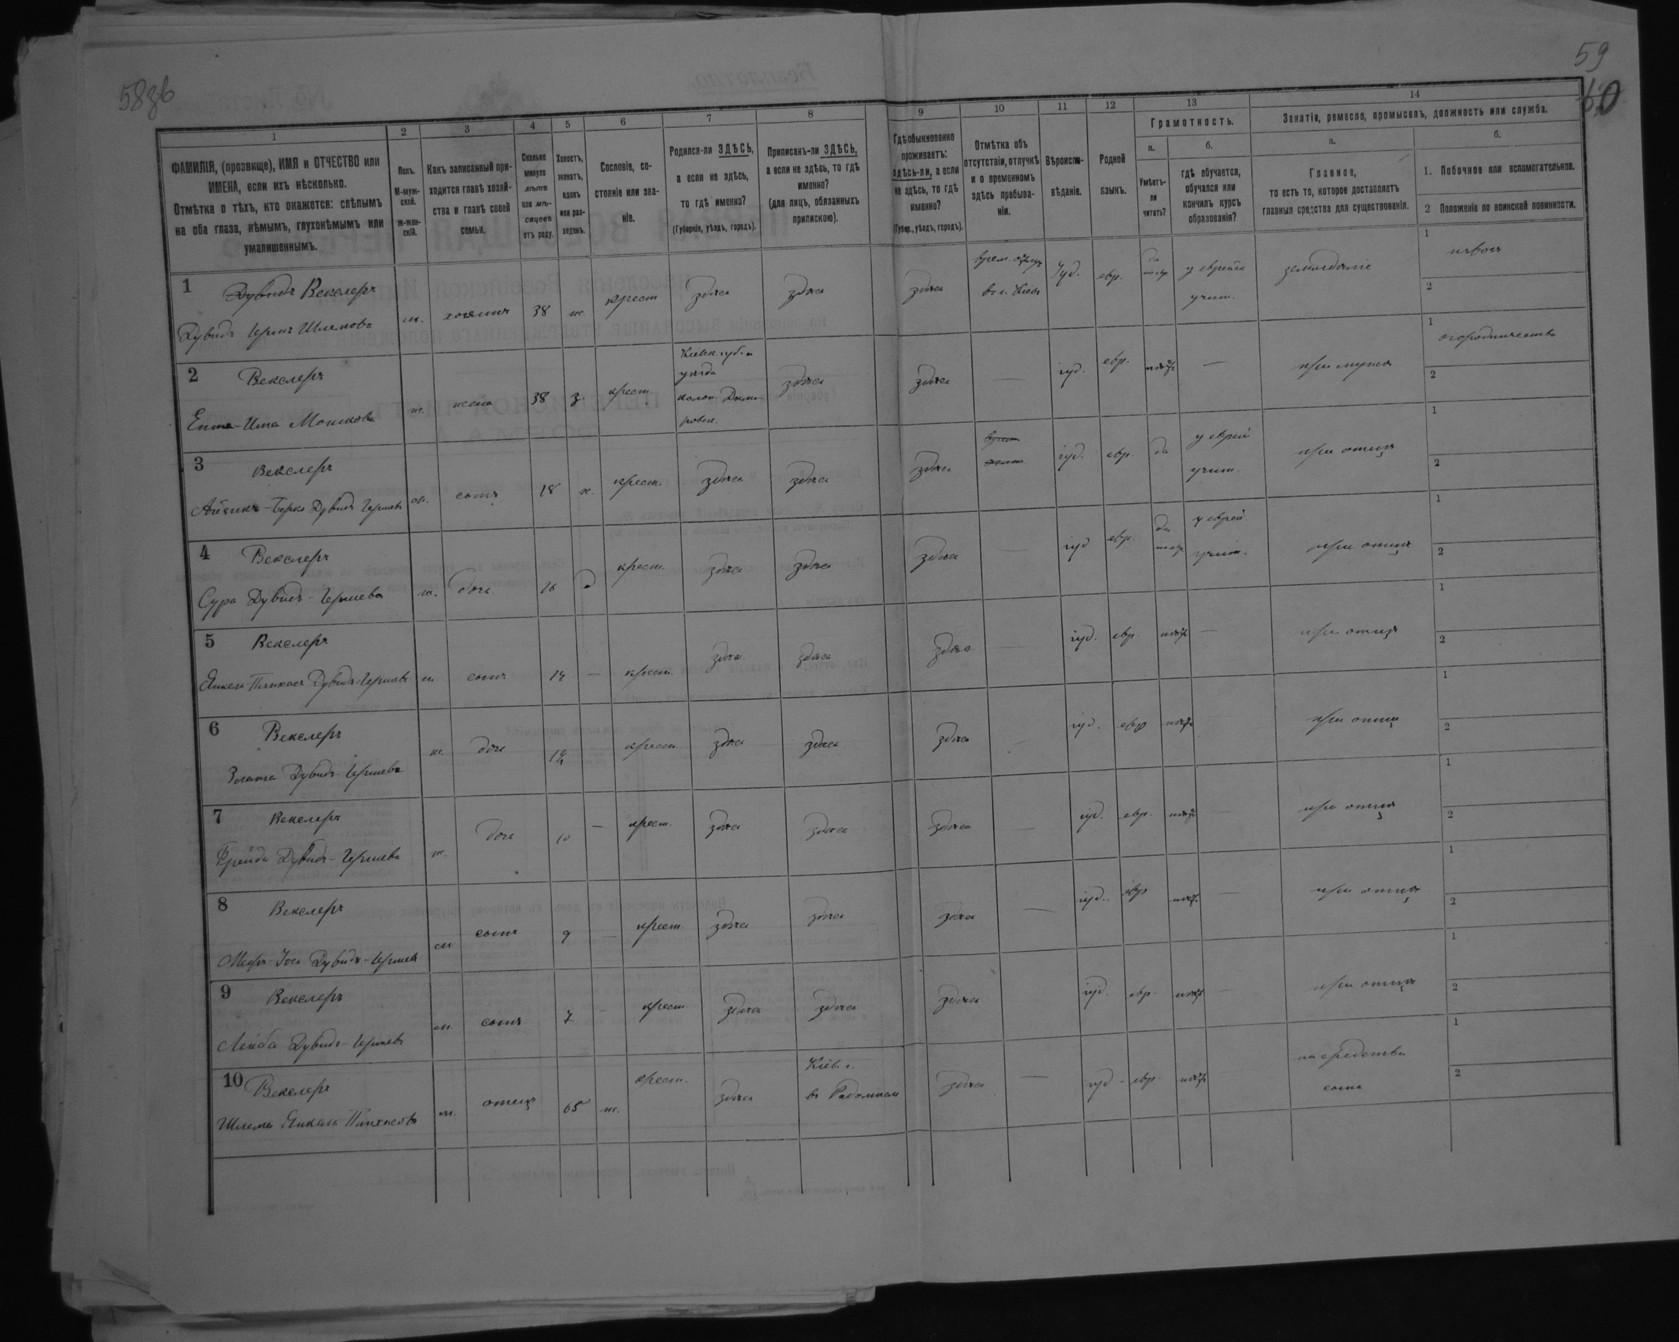 59
60
1 2 3 4 5 6 7 8 9 10 11 12 13 14
ФАМИЛІЯ, (прозвище), ИМЯ и ОТЧЕСТВО или ИМЕНА, если ихъ нѣсколько.
Отмѣтка о тѣхъ, кто окажется: слѣпымъ на оба глаза, нѣмымъ, глухонѣмымъ или умалишеннымъ.
Полъ.
М-мужской.
Ж-женскій.
Какъ записанный приходится главѣ хозяйства и главѣ своей семьи.
Сколько минуло лѣтъ или мѣсяцевъ отъ роду.
Холостъ, женатъ, вдовъ или разведенъ.
Сословіе, состояніе или званіе.
Родился-ли ЗДѢСЬ, а если не здѣсь, то гдѣ именно?
(Губернія, уѣздъ, городъ).
Приписанъ-ли ЗДѢСЬ, а если не здѣсь, то гдѣ именно?
(для лицъ, обязанныхъ припискою).
Гдѣ обыкновенно проживаетъ: здѣсь-ли, а если не здѣсь, то гдѣ именно?
(Губер., уѣздъ, городъ).
Отмѣтка объ отсутствіи, отлучкѣ и о временномъ здѣсь пребываніи.
Вѣроисповѣданіе.
Родной языкъ.
Грамотность.
а.
Умѣетъ-ли читать?
б.
гдѣ обучается, обучался или кончилъ курсъ образованія?
Занятія, ремесло, промыселъ, должность или служба.
а.
Главное,
то есть то, которое доставляетъ главныя средства для существованія.
б.
1. Побочное или вспомогательное.
2 Положеніе по воинской повинности.
1 Дувидъ Векслеръ
Дувидъ Гершъ Шлемовъ м. хозяинъ 38 ж. крест здѣсь здѣсь здѣсь іуд. евр. у еврейск учит. земледѣліе 1 2
2 Векслеръ
Мошкова ж. жена 38 з. крест здѣсь здѣсь — іуд. евр. — при мужѣ 1 огородничество 2
3 Векслеръ
Айзикъ-Берко Дувидъ Гершевъ м. сынъ 18 х. крест. здѣсь здѣсь здѣсь іуд. евр. да у еврей учит. при отцѣ 1 2
4 Векслеръ
Сура Дувидъ-Гершева ж. дочь 16 д крест. здѣсь здѣсь здѣсь — іуд евр. у еврей учит. при отцѣ 1 2
5 Векслеръ
Пинхасъ Дувидъ-Гершевъ м сынъ 14 — крест. здѣсь. здѣсь здѣсь — іуд. евр — при отцѣ 1 2
6 Векслеръ
Злата Дувидъ-Гершева ж. дочь 12 крест здѣсь здѣсь здѣсь іуд. евр при отцѣ 1 2
7 Векслеръ
Фрейда Дувидъ-Гершева ж. дочь 10 — крест. здѣсь здѣсь здѣсь — іуд. евр. — при отцѣ 1 2
8 Векслеръ
Дувидъ-Гершевъ м сынъ 9 — крест здѣсь здѣсь здѣсь — іуд. евр — при отцѣ 1 2
9 Векслеръ
Лейба Дувидъ-Гершевъ м. сынъ 7 — крест здѣсь здѣсь здѣсь іуд. евр. — при отцѣ 1 2
10 Векслеръ
Шлема Пинхасовъ м. отецъ 65 ж. крест. здѣсь Кіев. г. здѣсь — іуд евр. на средства сына 1 2